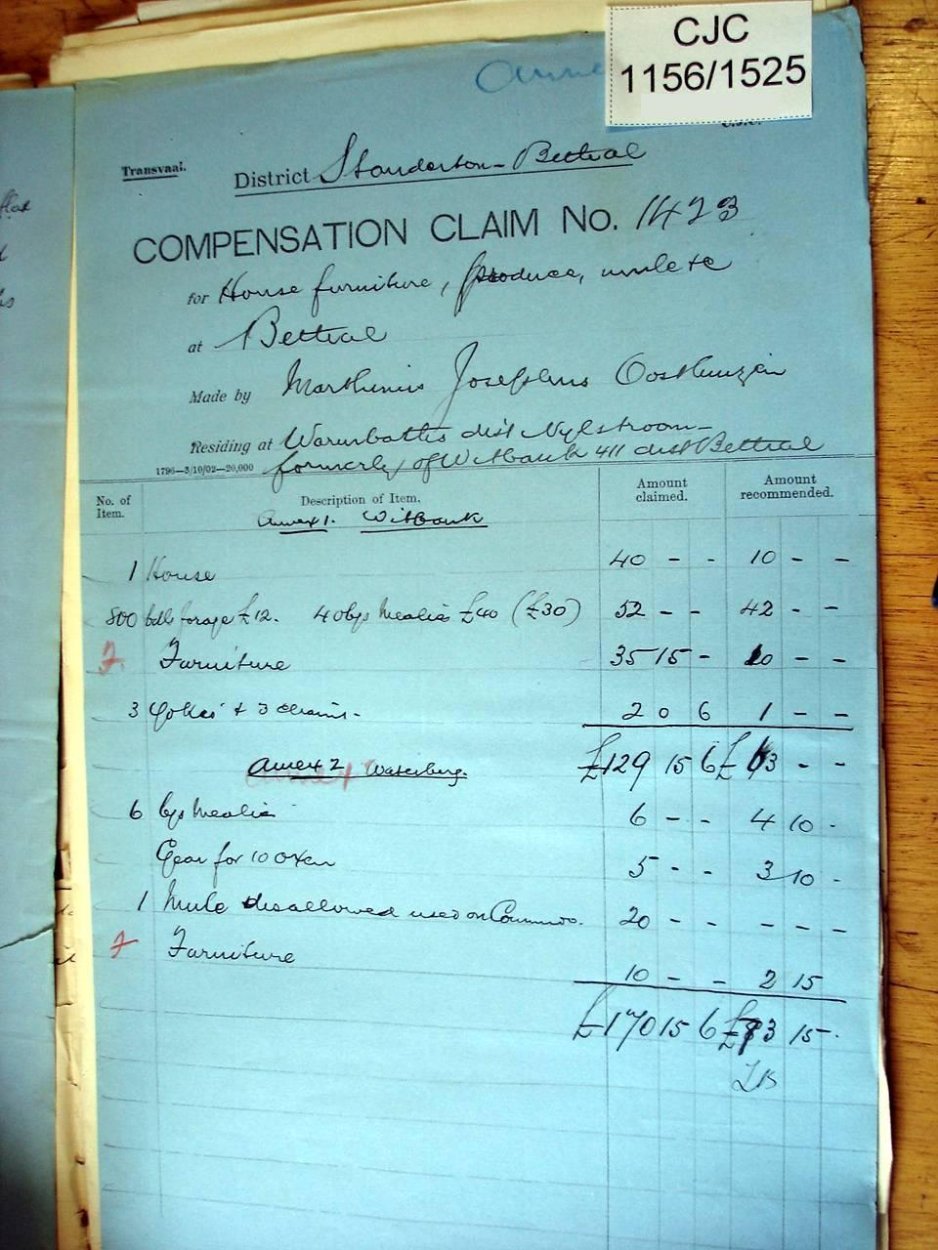 CJC
1156/1525
Anne
Transvaal.
District Standerton - Bethal
COMPENSATION CLAIM No. 1423
for House furniture, produce, mule &c
at Bethal
Made by Marthinus Josephus Oosthuizen
Residing at Warmbaths dist Nylstroom -
formerly of Witbank 411 dist Bethal
1796—3/10/02—20,000
No. of Item. Description of Item. Amount claimed. Amount recommended.
Annex 1. Witbank
1 House 40 - - 10 - -
800 bdls forage £12. 40 bgs Mealies £40 (£30) 52 - - 42 - -
7. Furniture 35 15 - 10 - -
3 Yokes + 3 chains. 2 0 6 1 - -
£129 15 6 £63 - -
Annex 2 Waterberg.
6 bgs Mealies 6 - - 4 10 -
Gear for 10 oxen 5 - - 3 10 -
1 Mule disallowed used on Commdo. 20 - - - - -
7 Furniture 10 - - 2 15
£170 15 6 £73 15 -